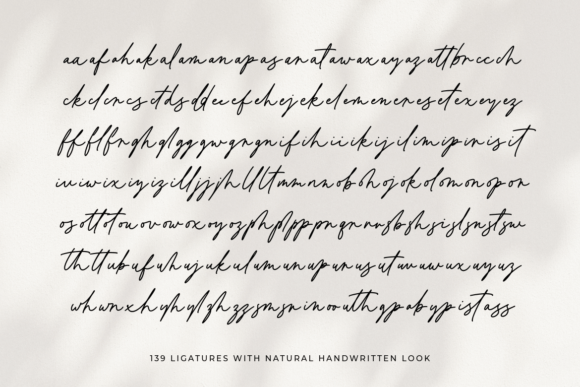 aa af ah ak al am an ap as an at aw ax ay az att br cc ch
ck cl cr cs ct ds dd ee ef eh ej ek el em en er es et ex ey ez
ff fl fr gh gl gg gw gr gn if ih ii ik ij il im ip ir is it
iu iw ix iy iz ll jj jh ll lt mm nn ob oh oj ok ol om on op or
os ott ot ou ov ow ox oy oz ph pl pp pn qr rr rs sb sh si sl sn st sw
th tt ub uf uh uj uk ul um un up ur us ut uv uw ux uy uz
wh wn xh yh yl zh zz sm sr in oo uth gp ab yp ist ass
139 LIGATURES WITH NATURAL HANDWRITTEN LOOK